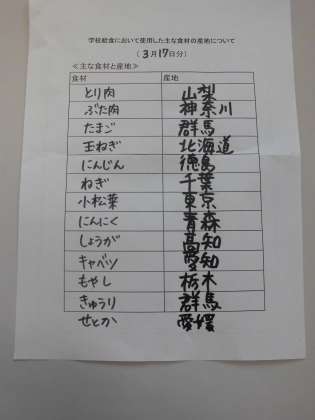 学校給食において使用した主な食材の産地について
(3月17日分)
≪主な食材と産地≫
食材 産地
とり肉 山梨
ぶた肉 神奈川
たまご 群馬
玉ねぎ 北海道
にんじん 徳島
ねぎ 千葉
小松菜 東京
にんにく 青森
しょうが 高知
キャベツ 愛知
もやし 栃木
きゅうり 群馬
せとか 愛媛